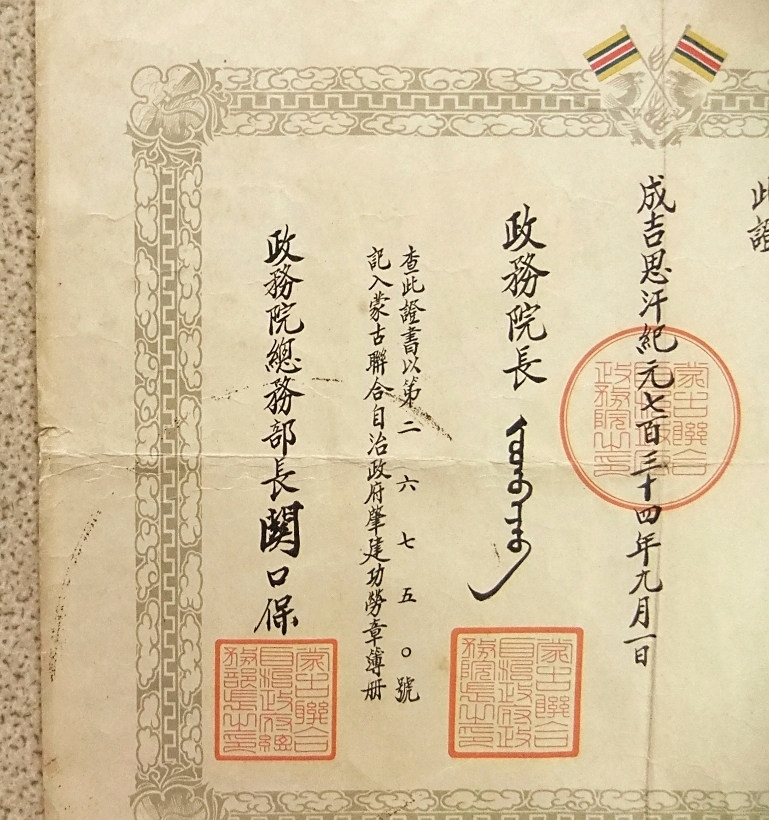 此證
成吉思汗紀元七百三十四年九月一日
蒙古聯合
自治政府
政務院之印
政務院長
蒙古聯合
自治政府政
務院長之印
查此證書以第二六七五〇號
記入蒙古聯合自治政府肇建功勞章簿册
政務院總務部長関口保
蒙古聯合
自治政府總
務部長之印